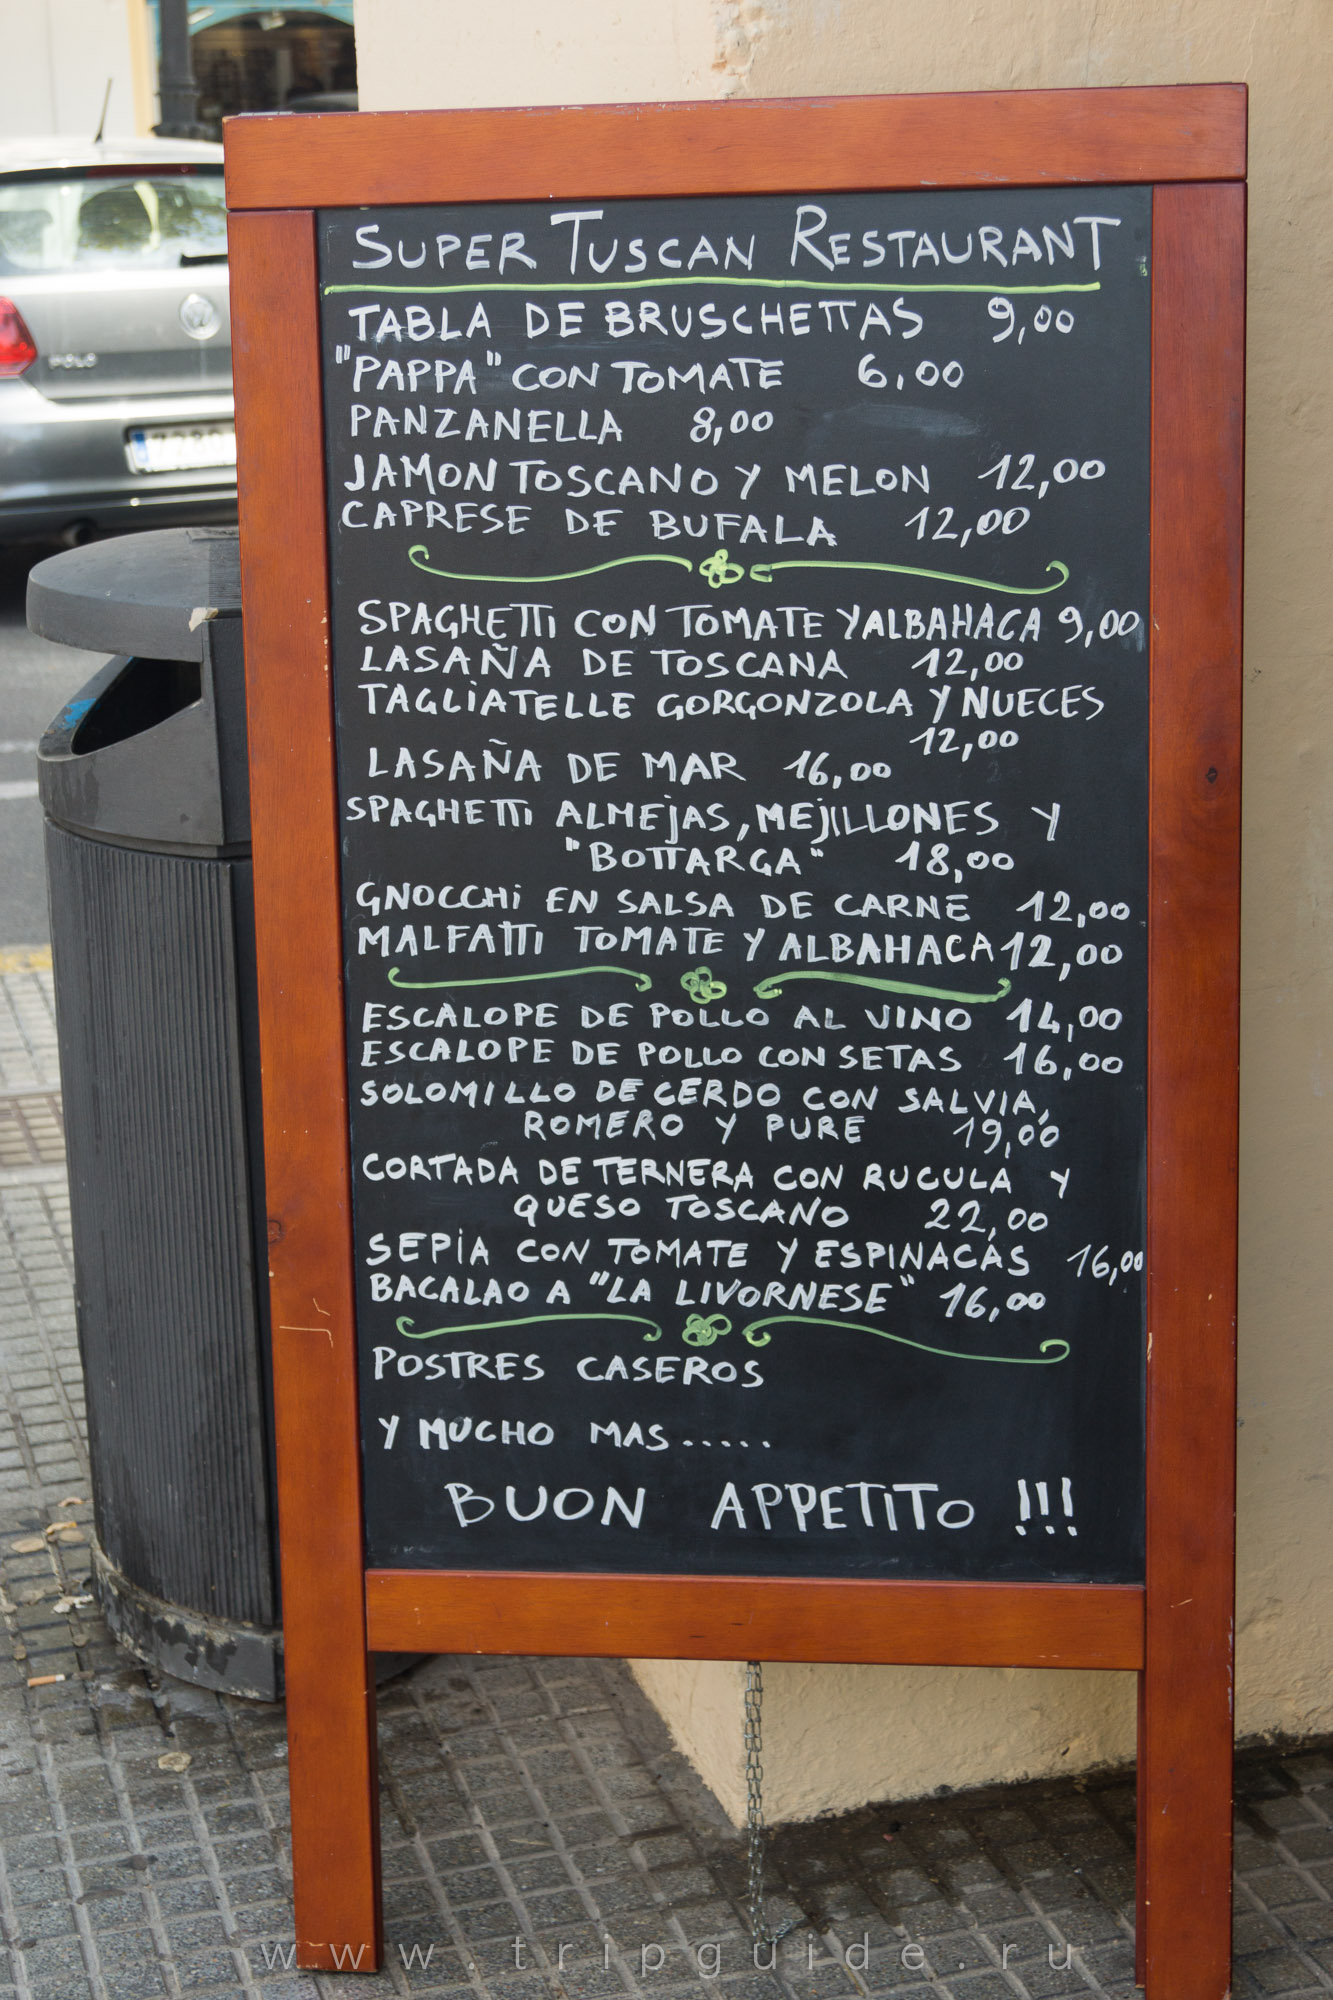 SUPER TUSCAN RESTAURANT
TABLA DE BRUSCHETTAS 9,00
"PAPPA" CON TOMATE 6,00
PANZANELLA 8,00
JAMON TOSCANO Y MELON 12,00
CAPRESE DE BUFALA 12,00
SPAGHETTi CON TOMATE Y ALBAHACA 9,00
LASAÑA DE TOSCANA 12,00
TAGLiATELLE GORGONZOLA Y NUECES
12,00
LASAÑA DE MAR 16,00
SPAGHETTi ALMEjAS, MEjILLONES Y
"BOTTARGA" 18,00
GNOCCHi EN SALSA DE CARNE 12,00
MALFATTI TOMATE Y ALBAHACA 12,00
ESCALOPE DE POLLO AL VINO 14,00
ESCALOPE DE POLLO CON SETAS 16,00
SOLOMILLO DE CERDO CON SALVIA,
ROMERO Y PURE 19,00
CORTADA DE TERNERA CON RUCULA Y
QUESO TOSCANO 22,00
SEPiA CON TOMATE Y ESPINACAS 16,00
BACALAO A "LA LIVORNESE" 16,00
POSTRES CASEROS
Y MUCHO MAS.....
BUON APPETITO !!!
POLO
www.tripguide.ru